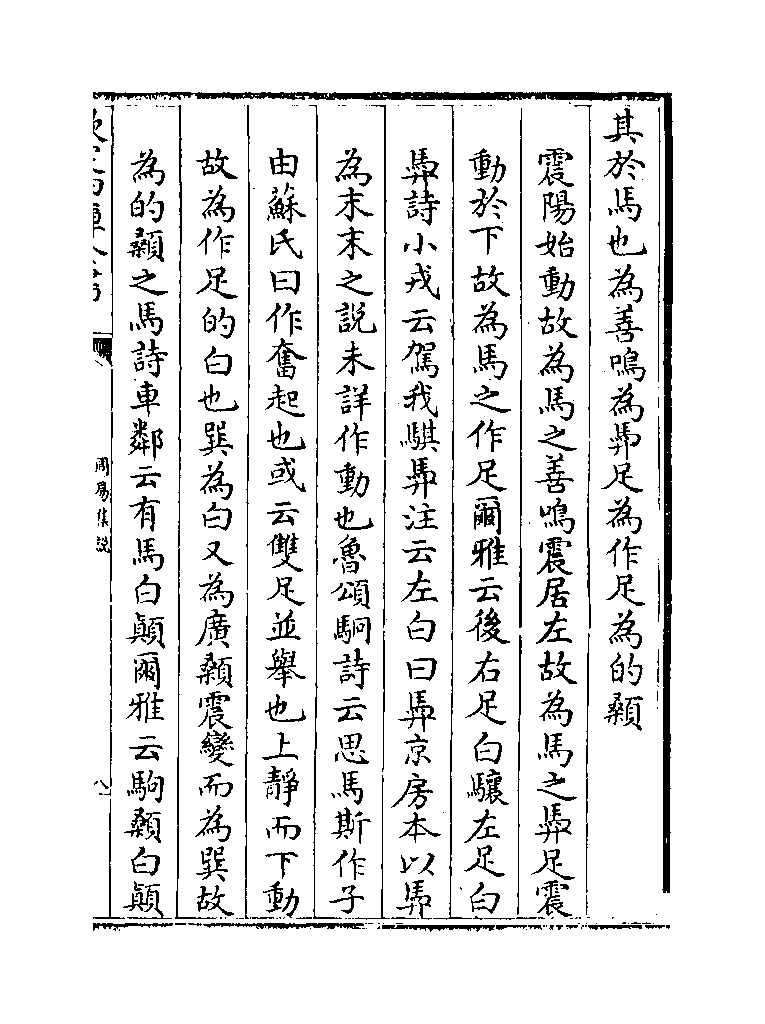 其於馬也為善鳴為馵足為作足為的顙
震陽始動故為馬之善鳴震居左故為馬之馵足震
動於下故為馬之作足爾雅云後右足白驤左足白
馵詩小戎云駕我騏馵注云左白曰馵京房本以馵
為末末之說未詳作動也魯頌駉詩云思馬斯作子
由蘇氏曰作奮起也或云雙足並舉也上靜而下動
故為作足的白也巽為白又為廣顙震變而為巽故
為的顙之馬詩車鄰云有馬白顛爾雅云馰顙白顛
周易集說
八